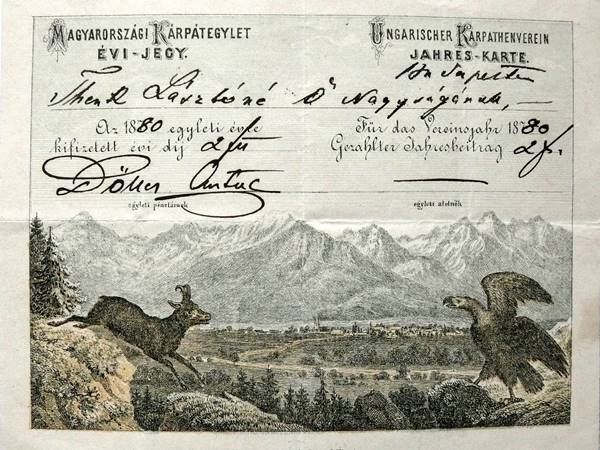 MAGYARORSZÁGI KÁRPÁTEGYLET
ÉVI-JEGY.
UNGARISCHER KARPATHENVEREIN
JAHRES-KARTE.
Budapesten
Thenk Lászlóné Ő Nagyságának,
Az 1880 egyleti évre
kifizetett évi díj 2 frt
Für das Vereinsjahr 1880
Gezahlter Jahresbeitrag 2 f.
Döller Antal
egyleti pénztárnok
egyleti alelnök